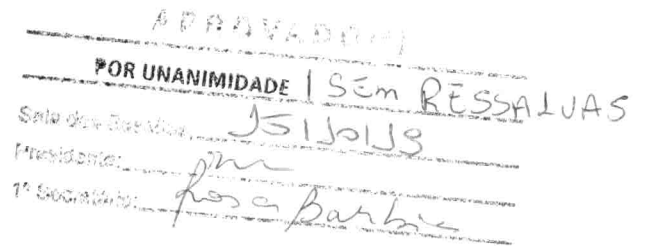 APROVADO(A)
POR UNANIMIDADE | SEM RESSALVAS
Sala das Sessões, 15/10/19
Presidente:
1º Secretário: Rosa Barbi